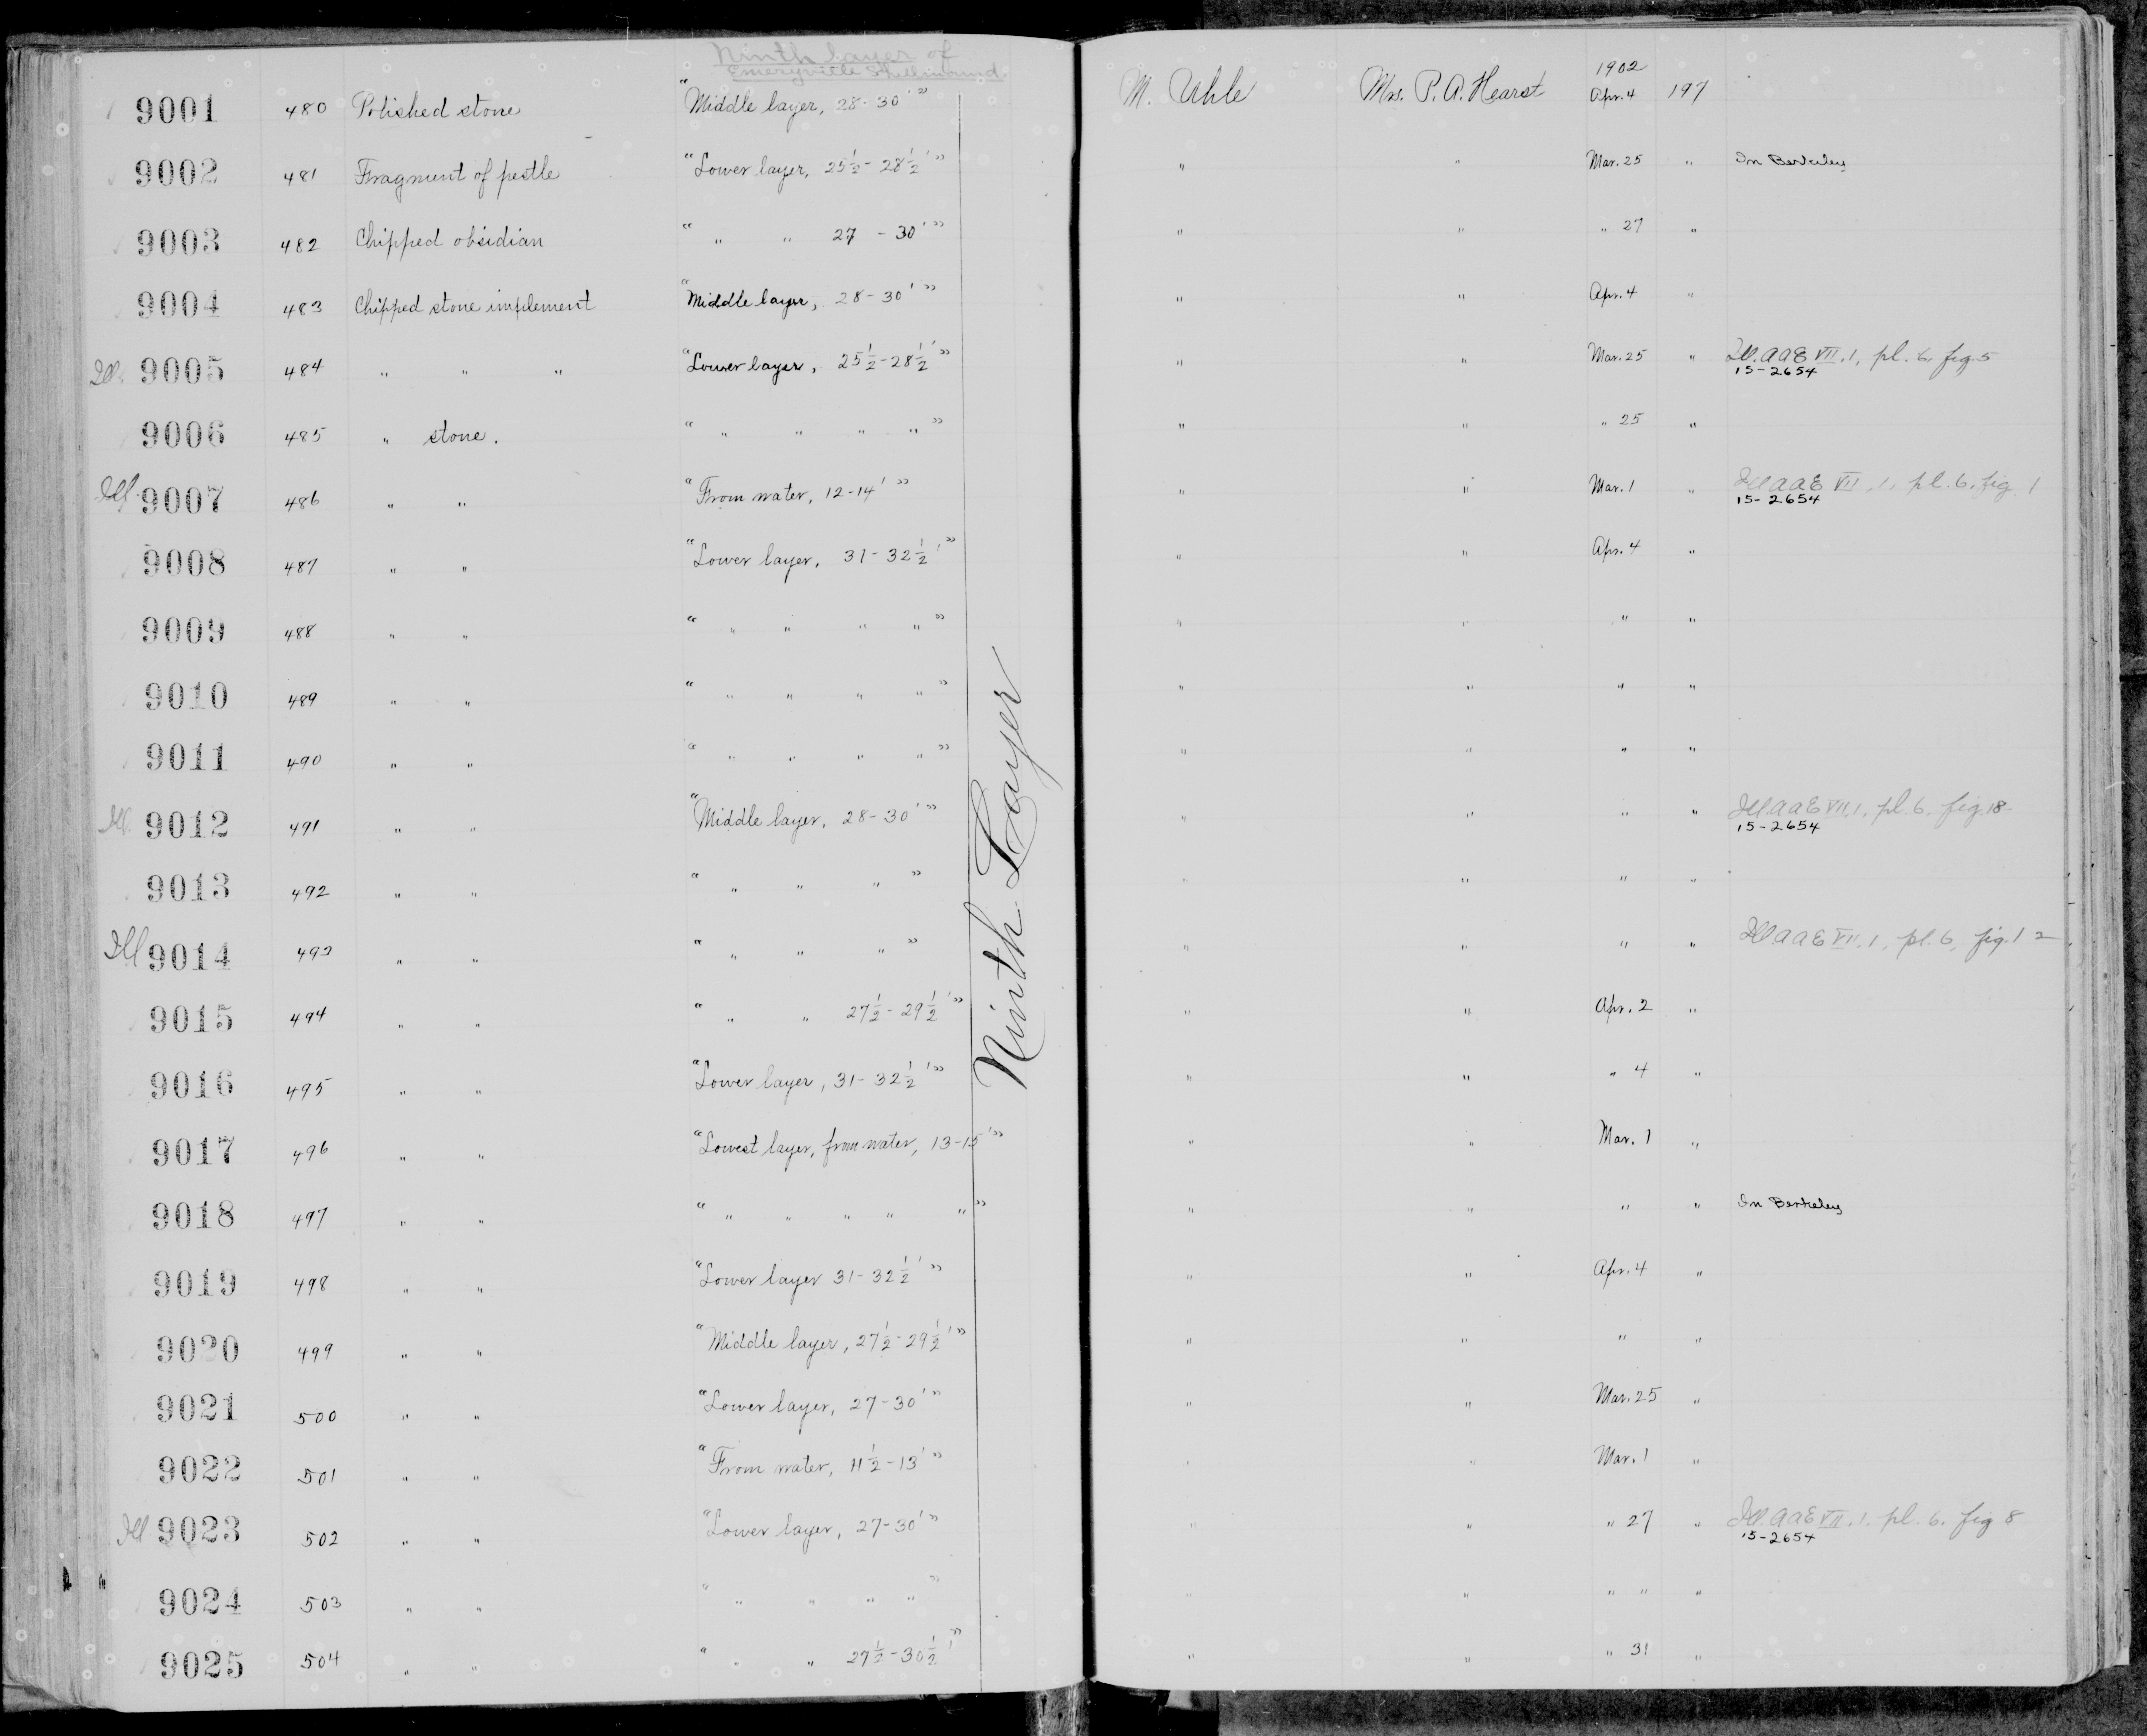 Ninth layer of
Emeryville Shellmound.
9001 480 Polished stone "Middle layer, 28-30'" M. Uhle Mrs. P. A. Hearst 1902 Apr. 4 197
9002 481 Fragment of pestle "Lower layer, 25½-28½'" " " Mar. 25 " In Berkeley
9003 482 Chipped obsidian " " " 27 - 30'" " " " 27 "
9004 483 Chipped stone implement "Middle layer, 28-30'" " " Apr. 4 "
Ill. 9005 484 " " " "Lower layer, 25½-28½'" " " Mar. 25 " Ill. AAE VII.1, pl. 6, fig. 5
15-2654
9006 485 " stone. " " " " " " " " " 25 "
Ill. 9007 486 " " "From water, 12-14'" " " Mar. 1 " Ill AAE VII.1, pl. 6, fig. 1
15-2654
9008 487 " " "Lower layer, 31-32½'" " " Apr. 4 "
9009 488 " " " " " " " " " " " "
9010 489 " " " " " " " " " " " "
9011 490 " " " " " " " " " " " "
Ill. 9012 491 " " "Middle layer, 28-30'" " " " " Ill. AAE VII.1, pl. 6. fig. 18
15-2654
9013 492 " " " " " " " " " " "
Ill 9014 493 " " " " " " " " " " " Ill. AAE VII.1, pl. 6, fig. 12
9015 494 " " " " " 27½-29½'" " " Apr. 2 "
9016 495 " " "Lower layer, 31-32½'" " " " 4 "
9017 496 " " "Lowest layer, from water, 13-15'" " " Mar. 1 "
9018 497 " " " " " " " " " " " " " In Berkeley
9019 498 " " "Lower layer 31-32½'" " " Apr. 4 "
9020 499 " " "Middle layer, 27½-29½'" " " " "
9021 500 " " "Lower layer, 27-30'" " " Mar. 25 "
9022 501 " " "From water, 11½-13'" " " Mar. 1 "
Ill 9023 502 " " "Lower layer, 27-30'" " " " 27 " Ill. AAE VII.1. pl. 6. fig 8
15-2654
9024 503 " " " " " " " " " " " " "
9025 504 " " " " " 27½-30½'" " " " 31 "
Ninth Layer